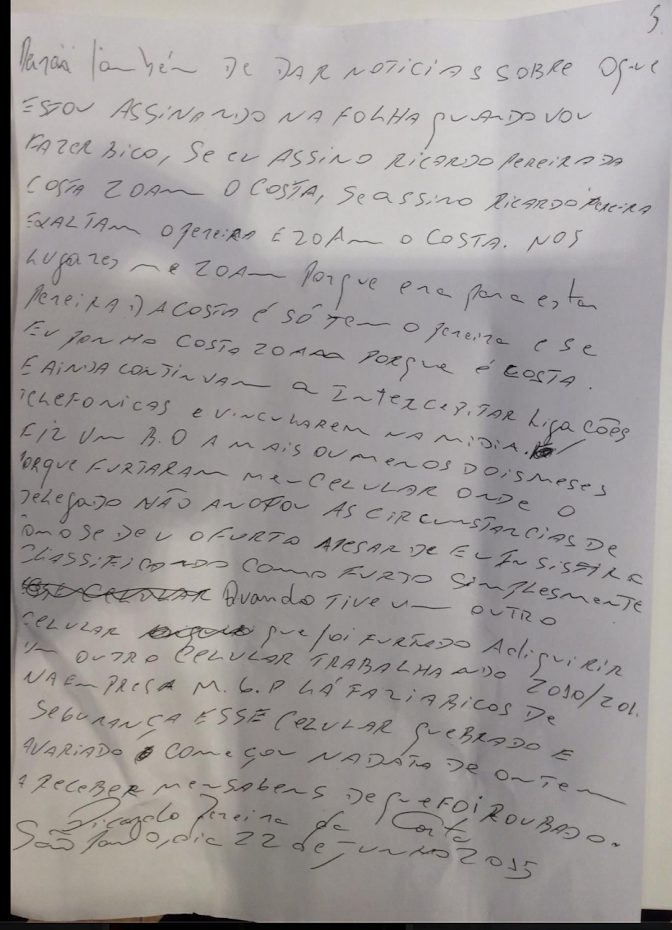 5.
também DE DAR NOTICIAS SOBRE OQUE
ESTOU ASSINANDO NA FOLHA QUANDO VOU
FAZER BICO, SE EU ASSINO RICARDO PEREIRA DA
COSTA ZOAM O COSTA, SE ASSINO RICARDO PEREIRA
EXALTAM O PEREIRA E ZOAM O COSTA. NOS
LUGARES ME ZOAM PORQUE ERA PARA ESTAR
PEREIRA DA COSTA É SÓ TEM O PEREIRA E SE
EU PONHO COSTA ZOAM PORQUE É COSTA.
E AINDA CONTINUAM A INTERCEPITAR LIGAÇÕES
TELEFONICAS E VINCULAREM NA MIDIA.
FIZ UM B.O A MAIS OU MENOS DOIS MESES
PORQUE FURTARAM MEU CELULAR ONDE O
DELEGADO NÃO ANOTOU AS CIRCUNSTANCIAS DE
COMO SE DEU O FURTO APESAR DE EU INSISTIR E
CLASSIFICANDO COMO FURTO SIMPLESMENTE
CELULAR QUANDO TIVE UM OUTRO
CELULAR QUE FOI FURTADO ADIQUIRIR
UM OUTRO CELULAR TRABALHANDO 2010/201
NA EMPRESA M.G.P LÁ FAZIA BICOS DE
SEGURANÇA ESSE CELULAR QUEBRADO E
AVARIADO COMEÇOU NA DATA DE ONTEM
A RECEBER MENSAGENS DE QUE FOI ROUBADO.
Ricardo Pereira da Costa
São Paulo, dia 22 de JUNHO 2015